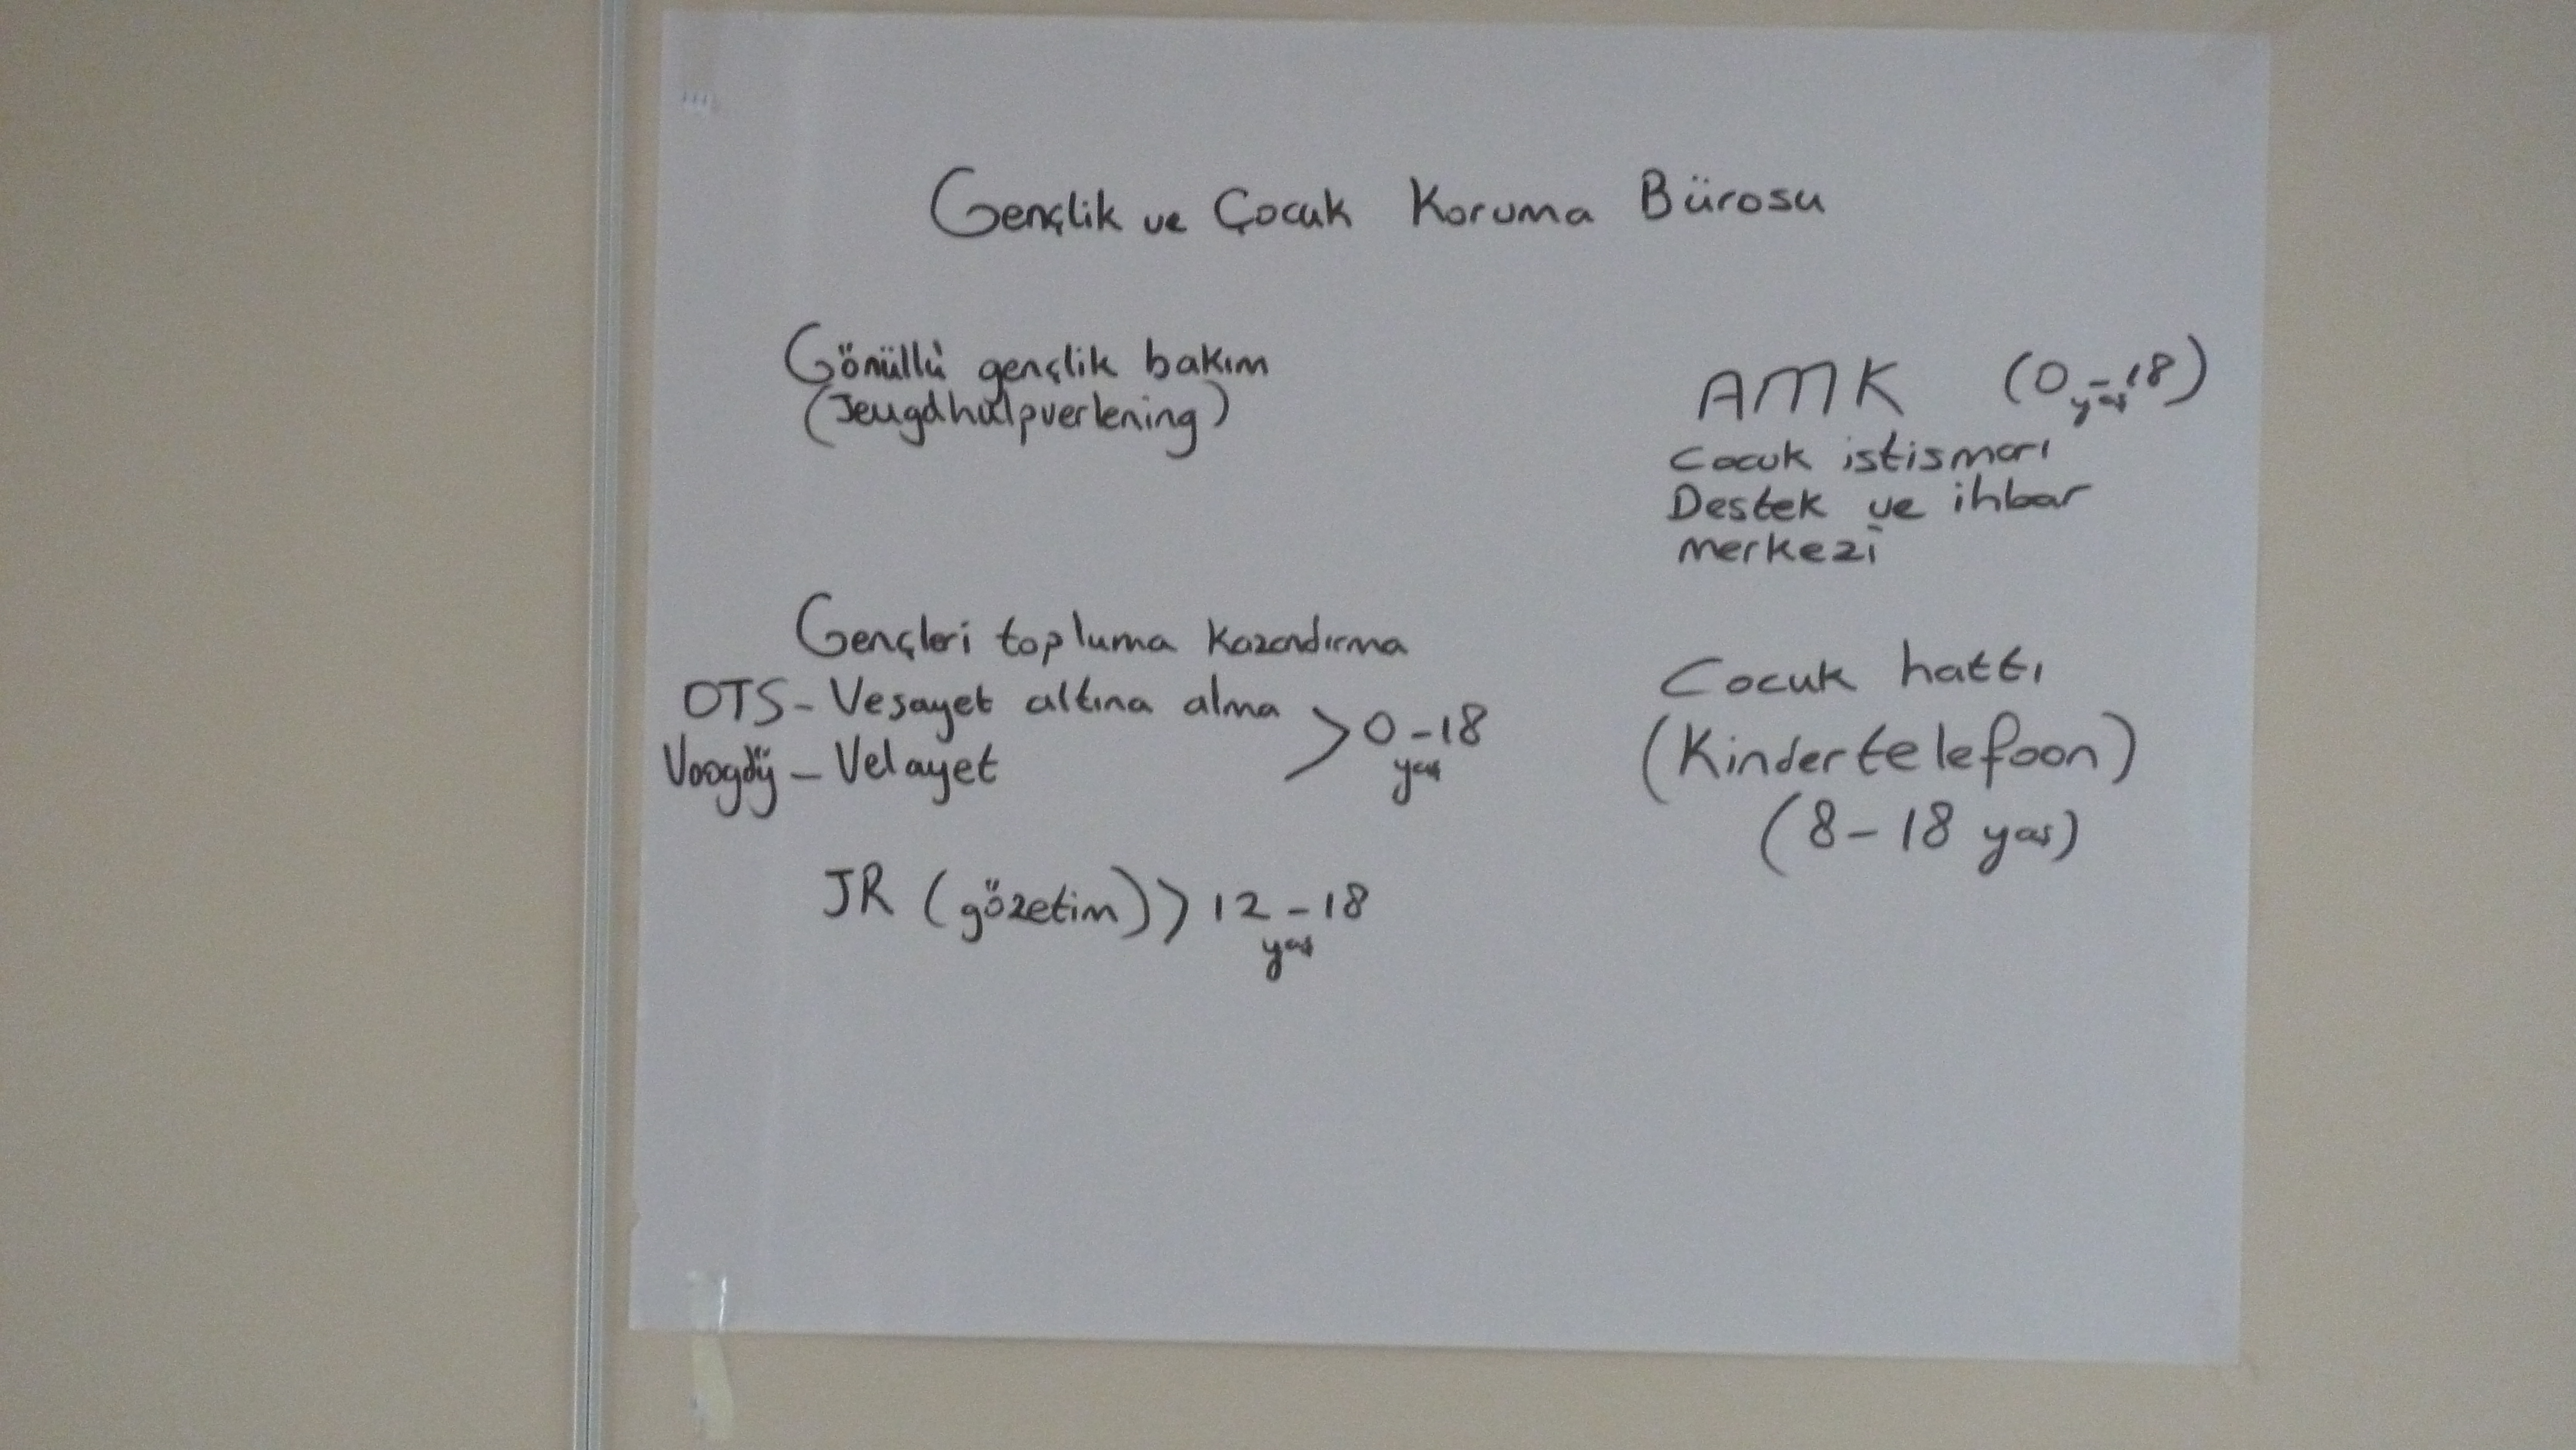 Gençlik ve Çocuk Koruma Bürosu
Gönüllü gençlik bakım
(Jeugdhulpverlening)
AMK (0-18)
yaş
Cocuk istismarı
Destek ve ihbar
merkezi
Gençleri topluma kazandırma
OTS - Vesayet altına alma
Voogdij - Velayet
> 0-18
yaş
JR (gözetim) > 12-18
yaş
Cocuk hattı
(Kindertelefoon)
(8-18 yaş)